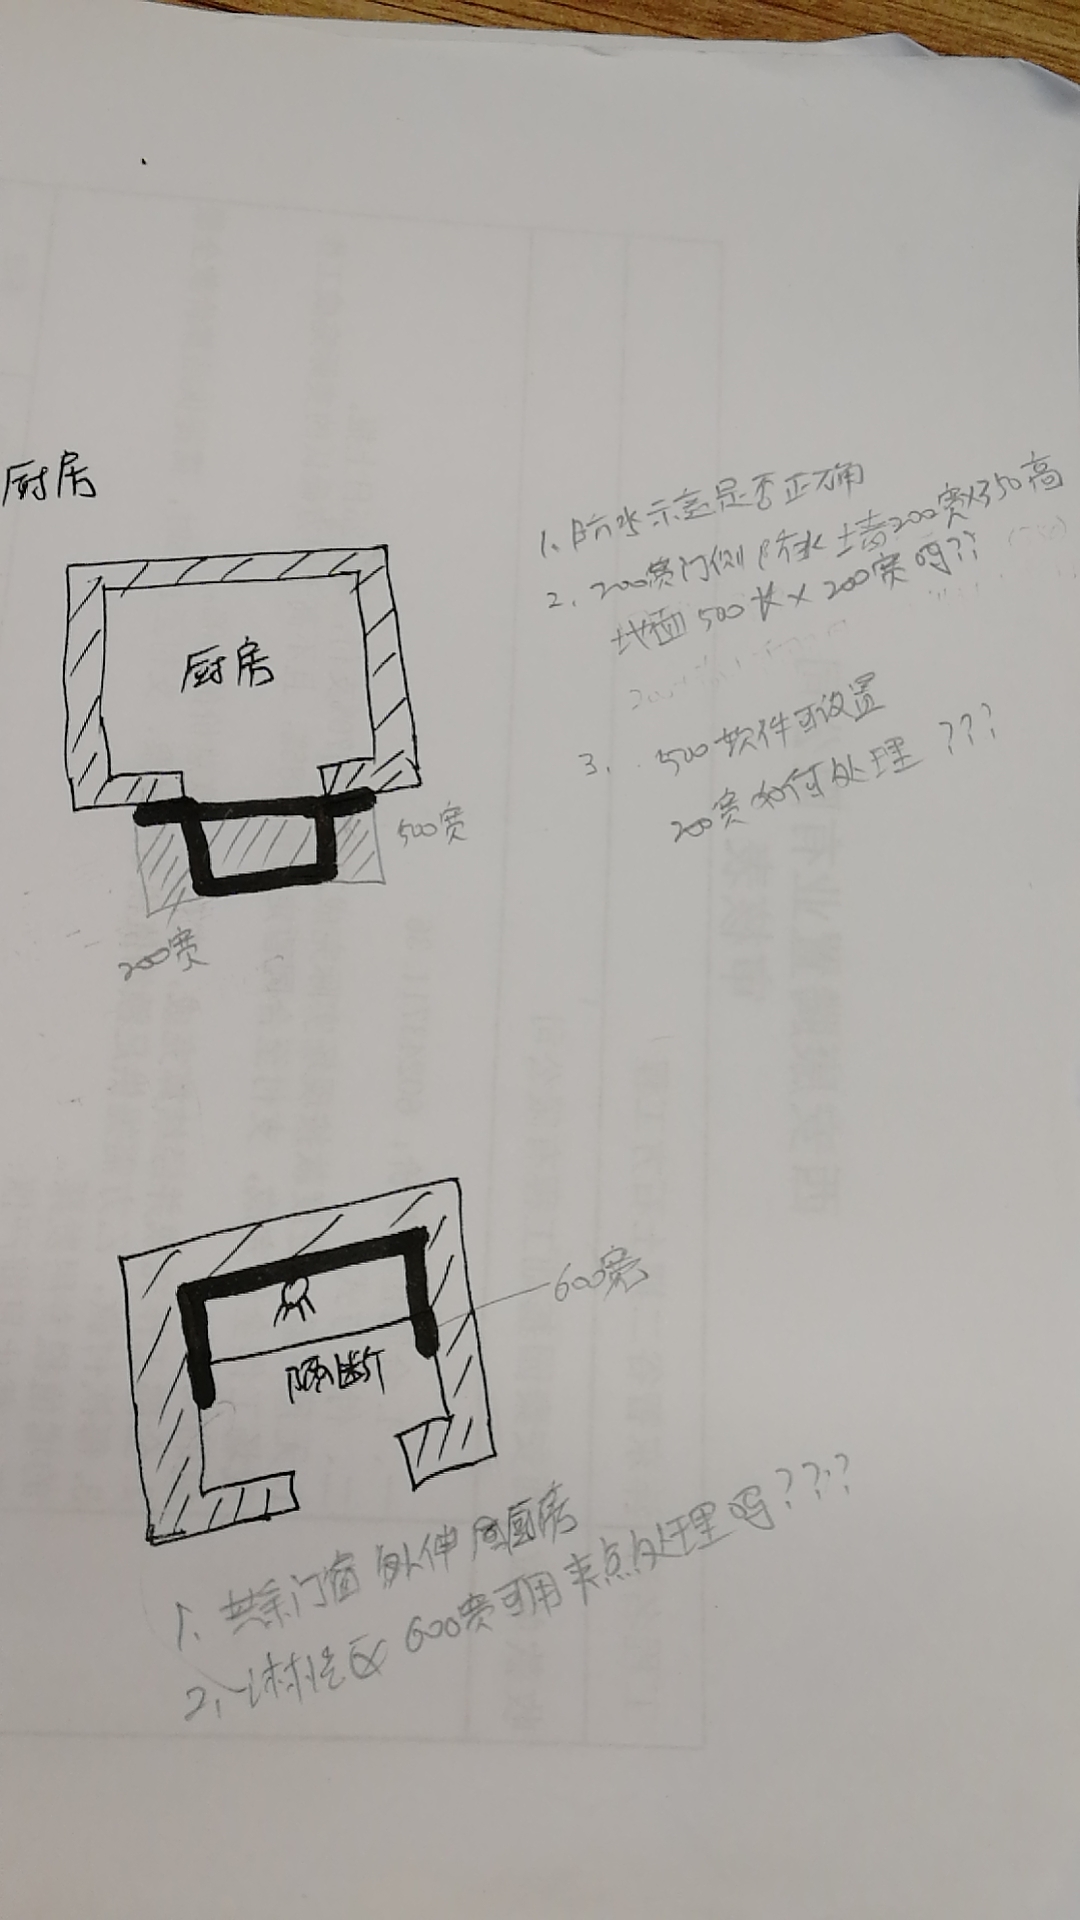 厨房
厨房
500宽
200宽
1、防水示意是否正确
2、200宽门侧防水 墙200宽×350高
地面500长×200宽吗??
3、500软件可设置
200宽如何处理???
600宽
隔断
1、共余门窗外伸同厨房
2、淋浴区600宽可用夹点处理吗???